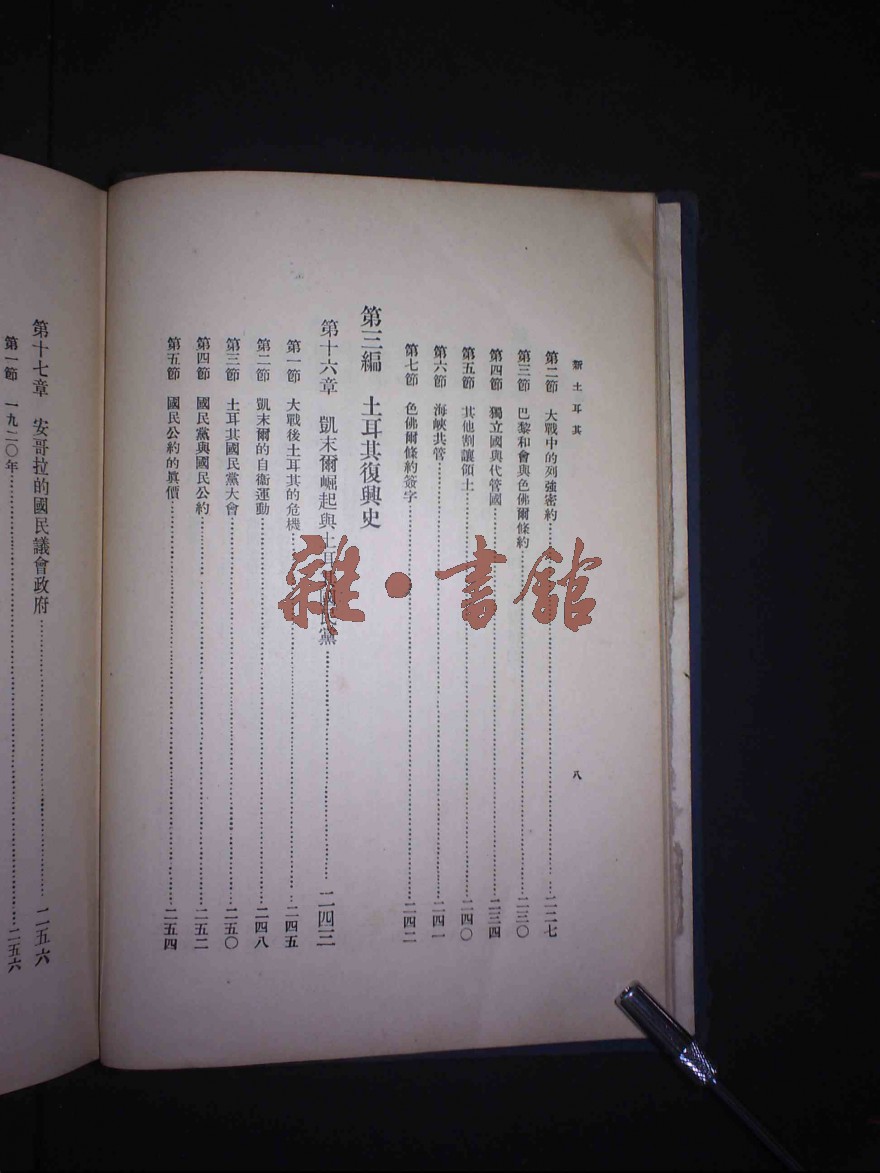 新土耳其
八
第二節 大戰中的列強密約……二二七
第三節 巴黎和會與色佛爾條約……二三〇
第四節 獨立國與代管國……二三四
第五節 其他割讓領土……二四〇
第六節 海峽共管……二四一
第七節 色佛爾條約簽字……二四二
第三編 土耳其復興史
第十六章 凱末爾崛起與土耳其國民黨……二四三
第一節 大戰後土耳其的危機……二四五
第二節 凱末爾的自衛運動……二四八
第三節 土耳其國民黨大會……二五〇
第四節 國民黨與國民公約……二五二
第五節 國民公約的眞價……二五四
第十七章 安哥拉的國民議會政府……二五六
第一節 一九二〇年……二五六
雜·書館